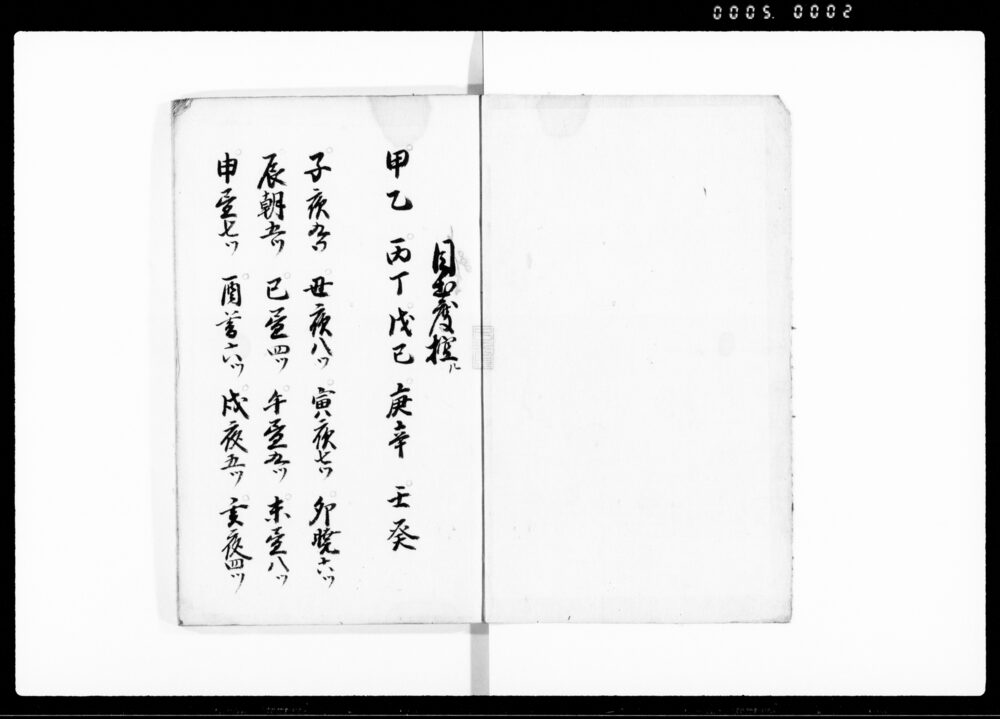 0005.0002
目出度控ル
甲乙 丙丁 戊己 庚辛 壬癸
子夜九ツ 丑夜八ツ 寅夜七ツ 卯暁六ツ
辰朝五ツ 巳昼四ツ 午昼九ツ 未昼八ツ
申昼七ツ 酉暮六ツ 戌夜五ツ 亥夜四ツ